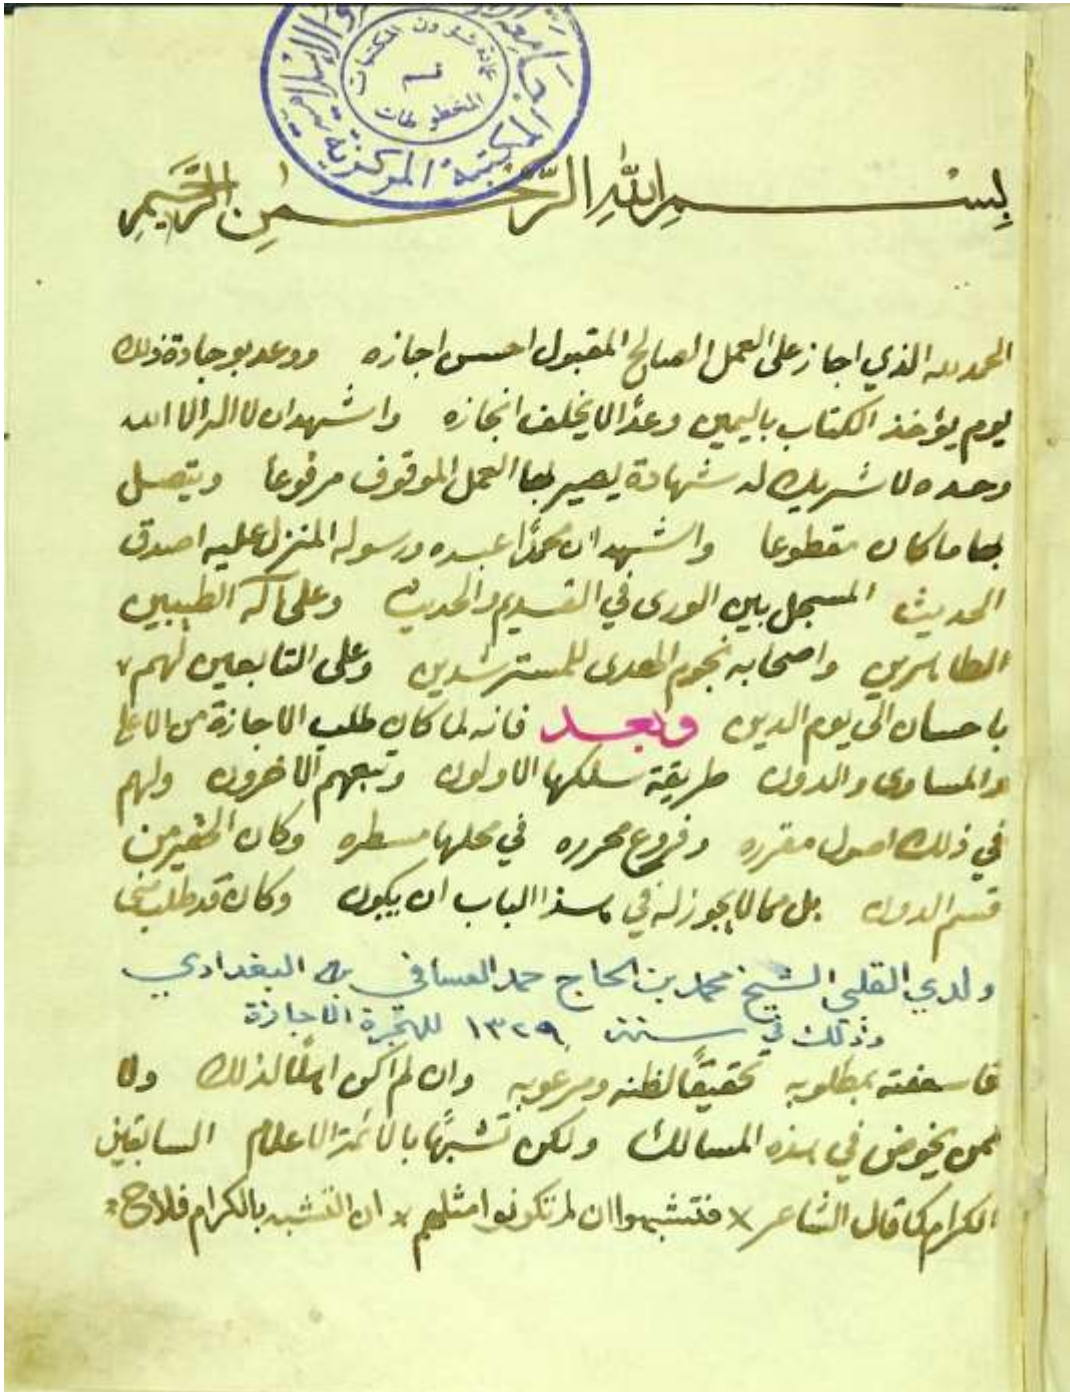 المكتبة المركزية
عمادة شؤون المكتبات
المخطوطات
بِسْمِ اللهِ الرَّحْمٰنِ الرَّحِيمِ
الحمد لله الذي اجاز على العمل الصالح المقبول احسن اجازه ووعد بوجادة ذلك
يوم يؤخذ الكتاب باليمين وعدًا لا يخلف انجازه واشهد ان لا اله الا الله
وحده لا شريك له شهادة يصير بها العمل الموقوف مرفوعا ويتصل
بها ما كان مقطوعا واشهد ان محمدًا عبده ورسوله المنزل عليه اصدق
الحديث المسجل بين الورى في القديم والحديث وعلى آله الطيبين
الطاهرين واصحابه نجوم الهدى للمسترشدين وعلى التابعين لهم
باحسان الى يوم الدين وبعد فانه لما كان طلب الاجازة من الاعلى
والمساوى والدون طريقة سلكها الاولون وتبعهم الآخرون ولهم
في ذلك اصول مقرره وفروع محرره في محلها مسطره وكان الحقير من
قسم الدون بل مما لا يجوز له في هذا الباب ان يكون وكان قد طلب مني
ولدي القلبي الشيخ محمد بن الحاج حمد العسافي البغدادي
وذلك في سنة ١٣٢٩ للهجرة الاجازة
فاسعفته بمطلوبه تحقيقًا لظنه ومرغوبه وان لم اكن اهلًا لذلك ولا
ممن يخوض في هذه المسالك ولكن تشبهًا بالائمة الاعلام السابقين
الكرام كما قال الشاعر × فتشبهوا ان لم تكونوا مثلهم × ان التشبه بالكرام فلاح